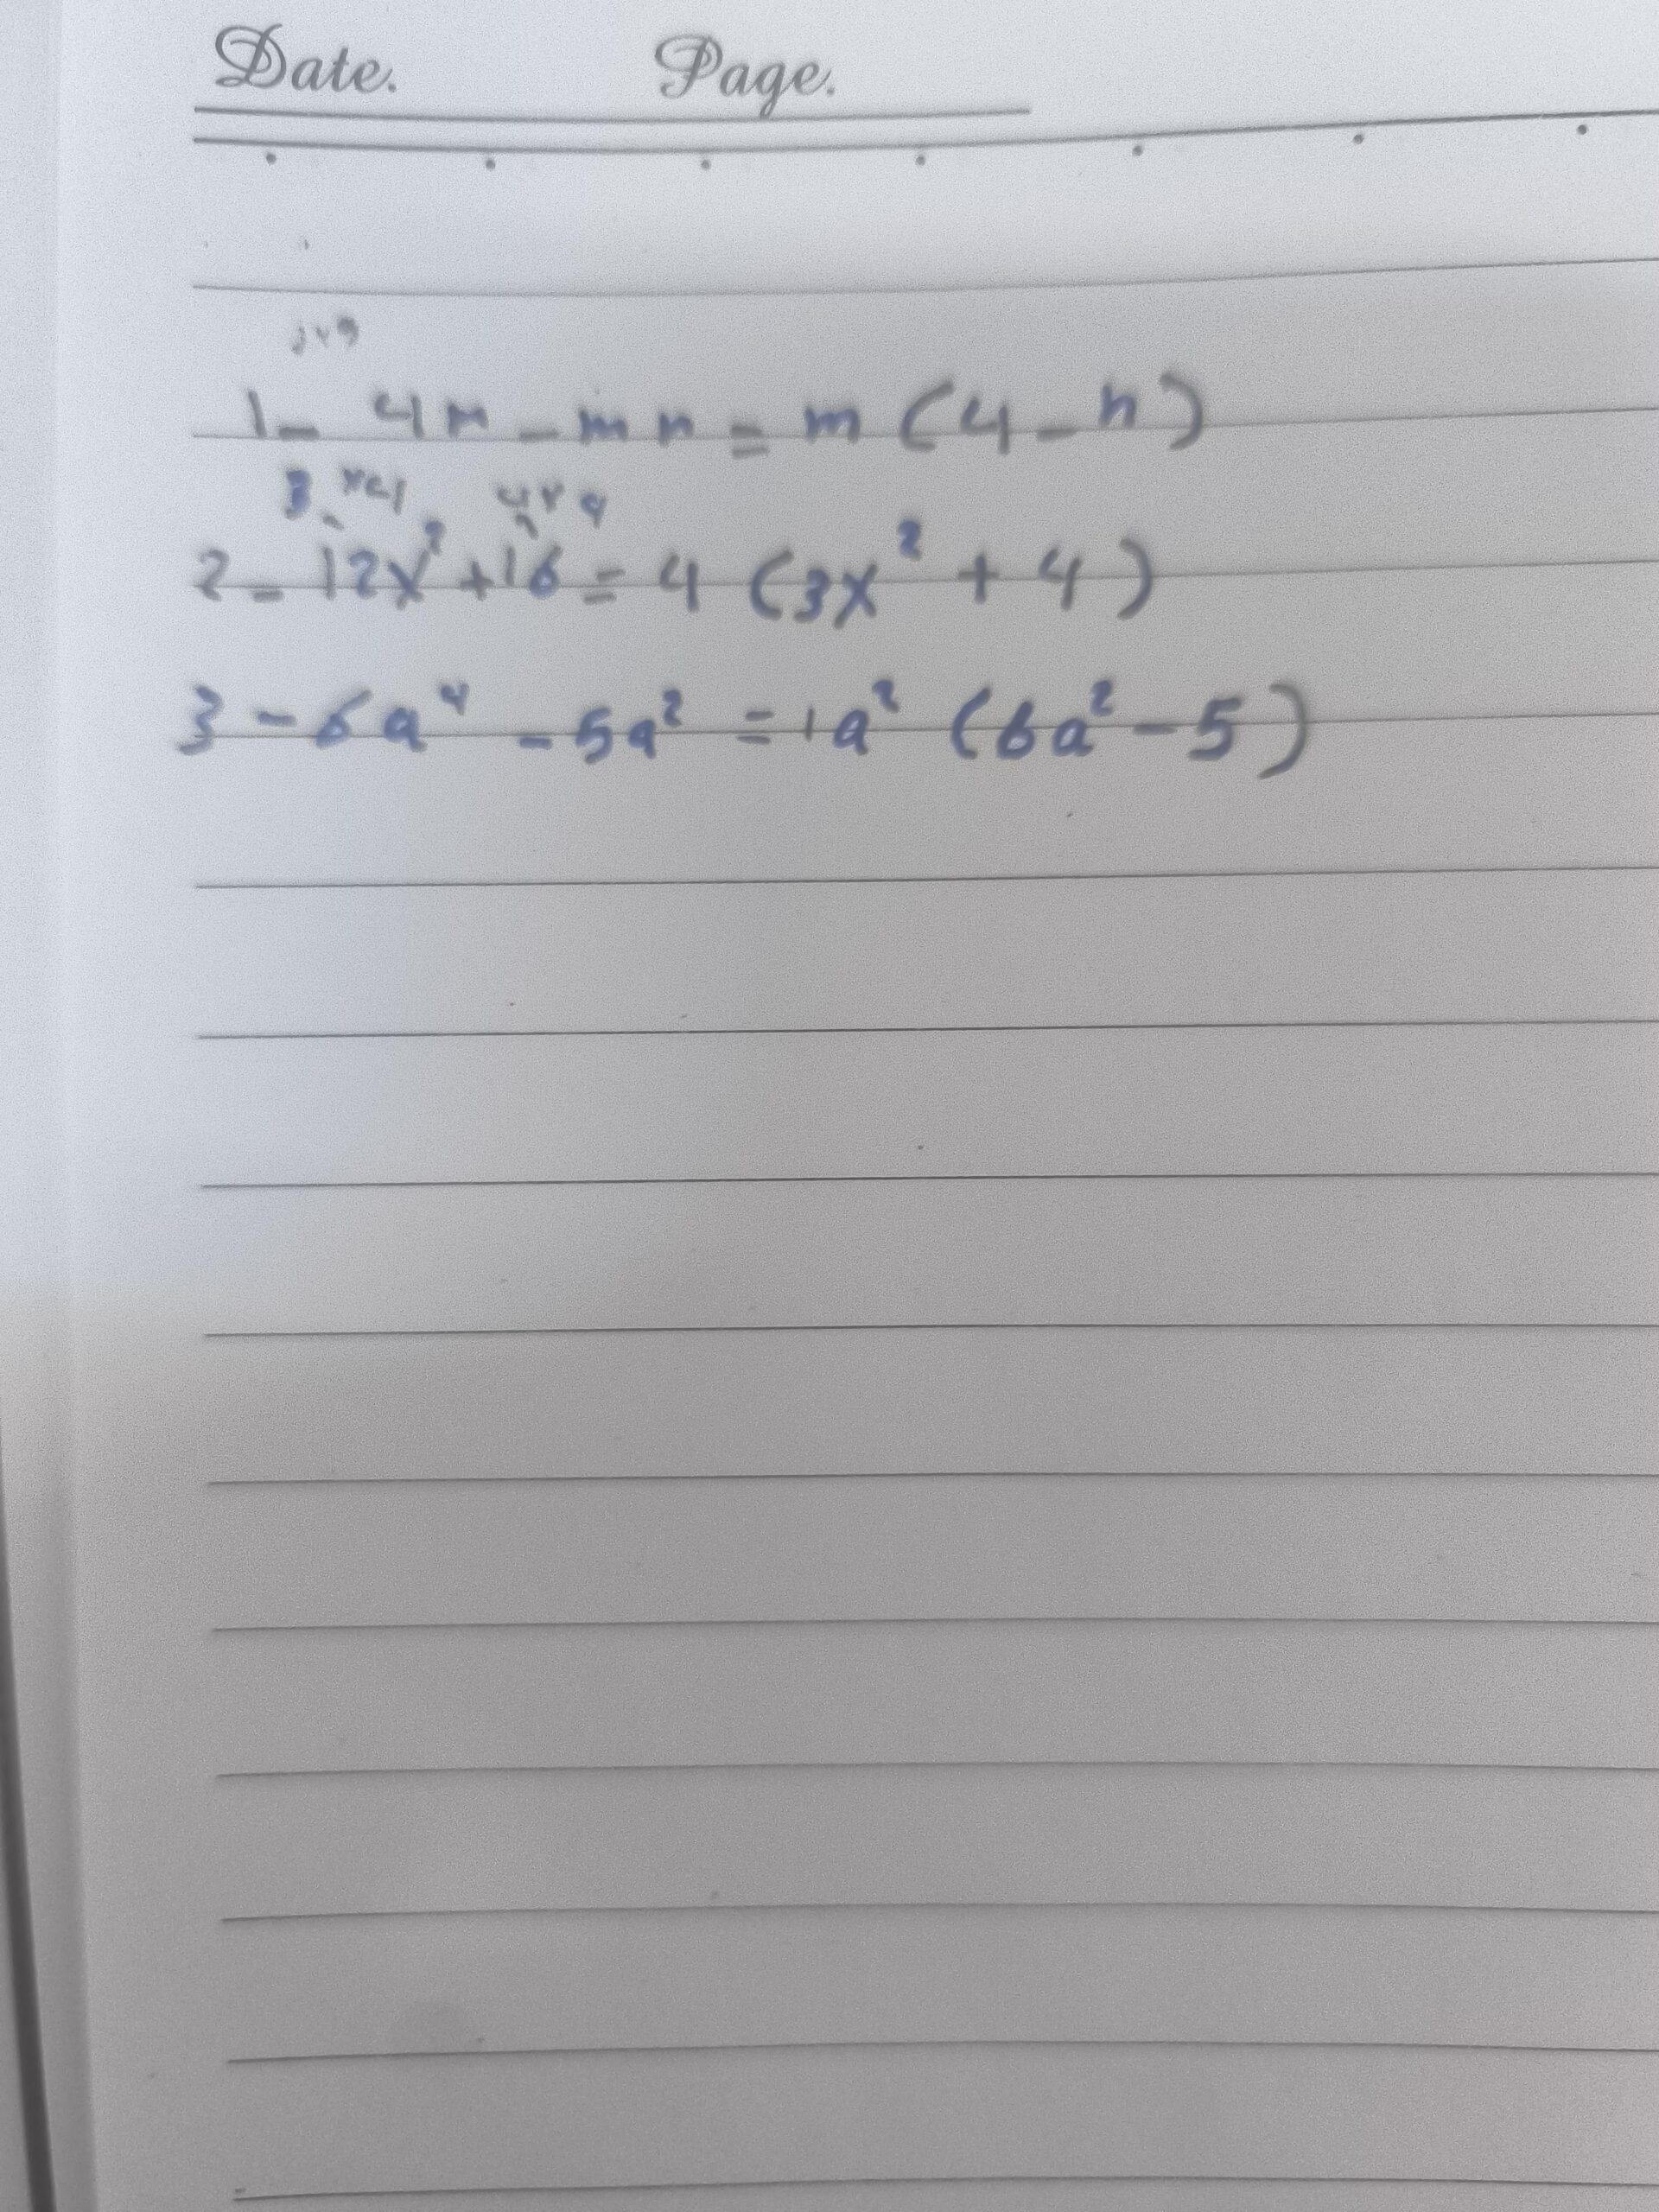 Date. Page.
1- 4m - mn = m (4 - n)
3 x4 4x4
2 - 12x² + 16 = 4 (3x² + 4)
3 - 6a⁴ - 5a² = 1a² (6a² - 5)